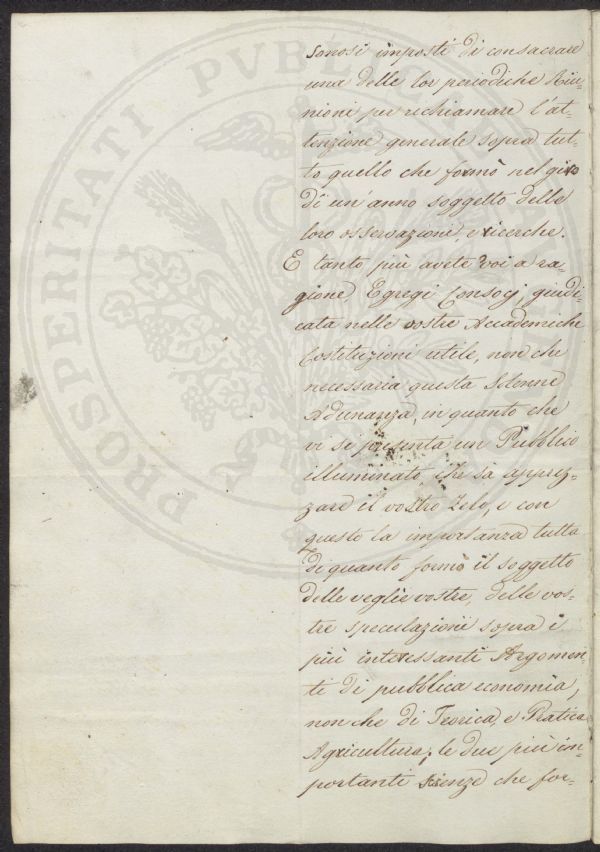 sonosi imposti di consacrare
una delle lor periodiche Riu-
nioni per richiamare l'at-
tenzione generale sopra tut-
to quello che formò nel giro
di un'anno soggetto delle
loro osservazioni, e ricerche.
E tanto più avete voi a ra-
gione Egregi Consocj, giudi-
cata nelle vostre Accademiche
Costituzioni utile, non che
necessaria questa Solenne
Adunanza, in quanto che
vi si presenta un Pubblico
illuminato, che sà apprez-
zare il vostro Zelo, e con
questo la importanza tutta
di quanto formò il soggetto
delle veglie vostre, delle vos-
tre speculazioni sopra i
più interessanti Argomen-
ti di pubblica economia,
non che di Teorica, e Pratica
Agricultura; le due più im-
portanti scienze che for-
PROSPERITATI PUBLICAE